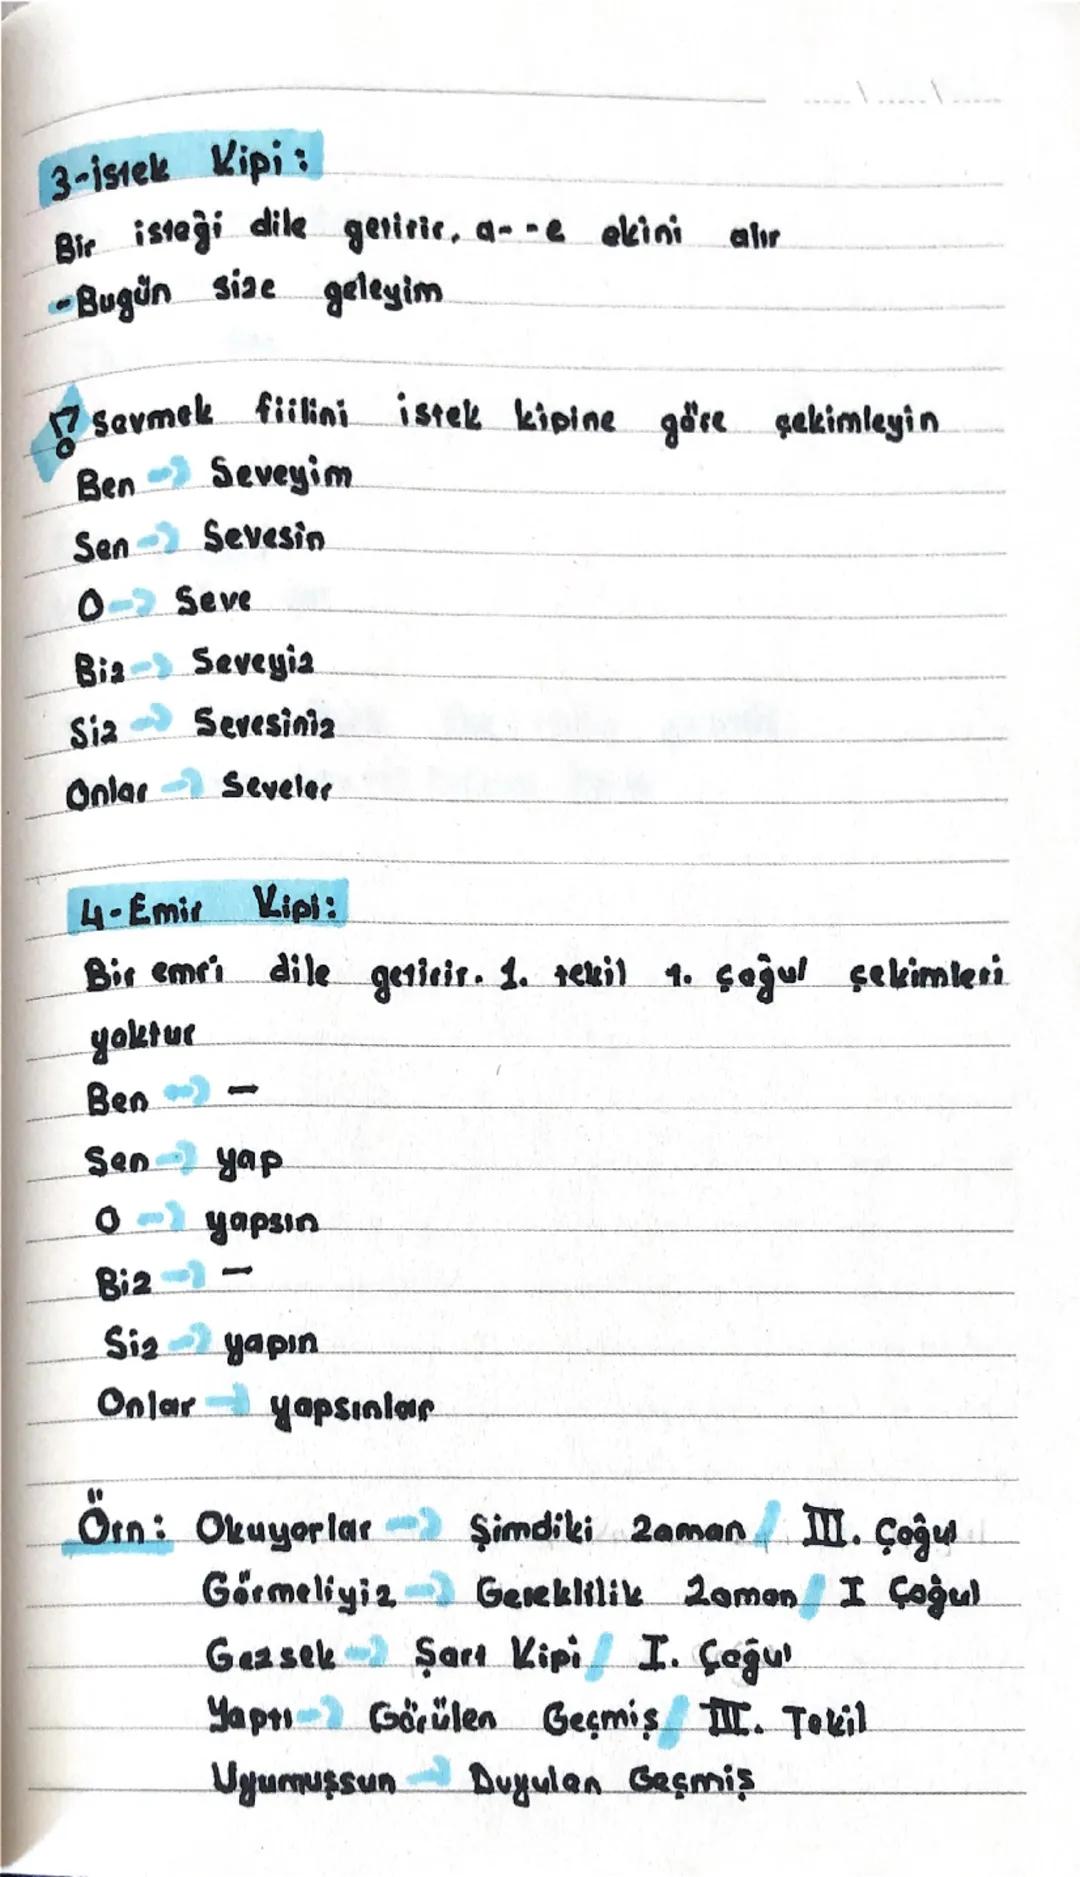 3-istek Kipi:
Bir isteği dile getirir, a--e ekini alır
-Bugün size geleyim
Sevmek fiilini istek kipine göre çekimleyin
Ben → Seveyim
Sen → Sevesin
O → Seve
Biz → Seveyiz
Siz → Sevesiniz
Onlar → Seveler
4-Emir Kipi:
Bir emri dile getirir. 1. tekil 1. çoğul çekimleri
yoktur
Ben → -
Sen → yap
O → yapsın
Biz → -
Siz → yapın
Onlar → yapsınlar
Örn: Okuyorlar → Şimdiki Zaman / III. Çoğul
Görmeliyiz → Gereklilik Zaman / I Çoğul
Gezsek → Şart Kipi / I. Çoğul
Yaptı → Görülen Geçmiş / III. Tekil
Uyumuşsun → Duyulan Geçmiş